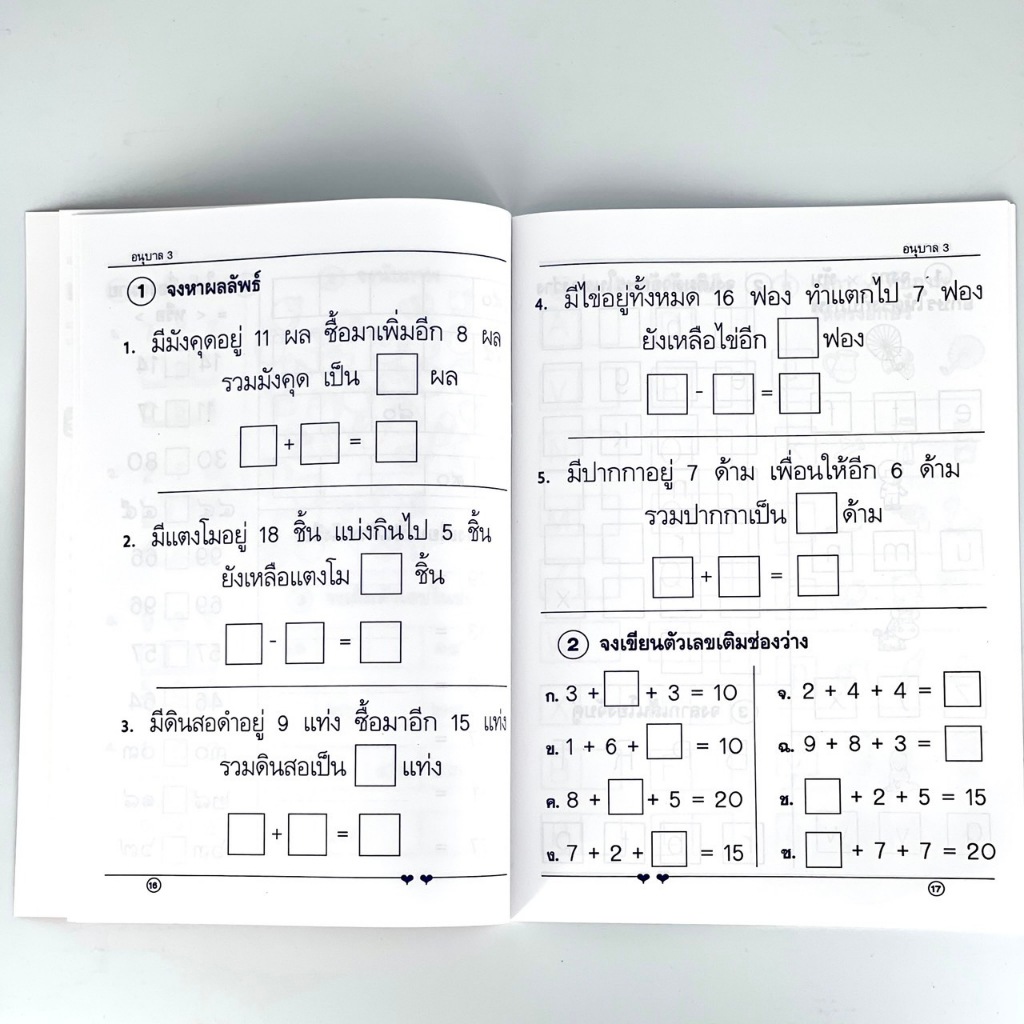 อนุบาล 3
1 จงหาผลลัพธ์
1. มีมังคุดอยู่ 11 ผล ซื้อมาเพิ่มอีก 8 ผล
รวมมังคุด เป็น ผล
+ =
2. มีแตงโมอยู่ 18 ชิ้น แบ่งกินไป 5 ชิ้น
ยังเหลือแตงโม ชิ้น
- =
3. มีดินสอดำอยู่ 9 แท่ง ซื้อมาอีก 15 แท่ง
รวมดินสอเป็น แท่ง
+ =
16
อนุบาล 3
4. มีไข่อยู่ทั้งหมด 16 ฟอง ทำแตกไป 7 ฟอง
ยังเหลือไข่อีก ฟอง
- =
5. มีปากกาอยู่ 7 ด้าม เพื่อนให้อีก 6 ด้าม
รวมปากกาเป็น ด้าม
+ =
2 จงเขียนตัวเลขเติมช่องว่าง
ก. 3 + + 3 = 10
ข. 1 + 6 + = 10
ค. 8 + + 5 = 20
ง. 7 + 2 + = 15
จ. 2 + 4 + 4 =
ฉ. 9 + 8 + 3 =
ช. + 2 + 5 = 15
ซ. + 7 + 7 = 20
17